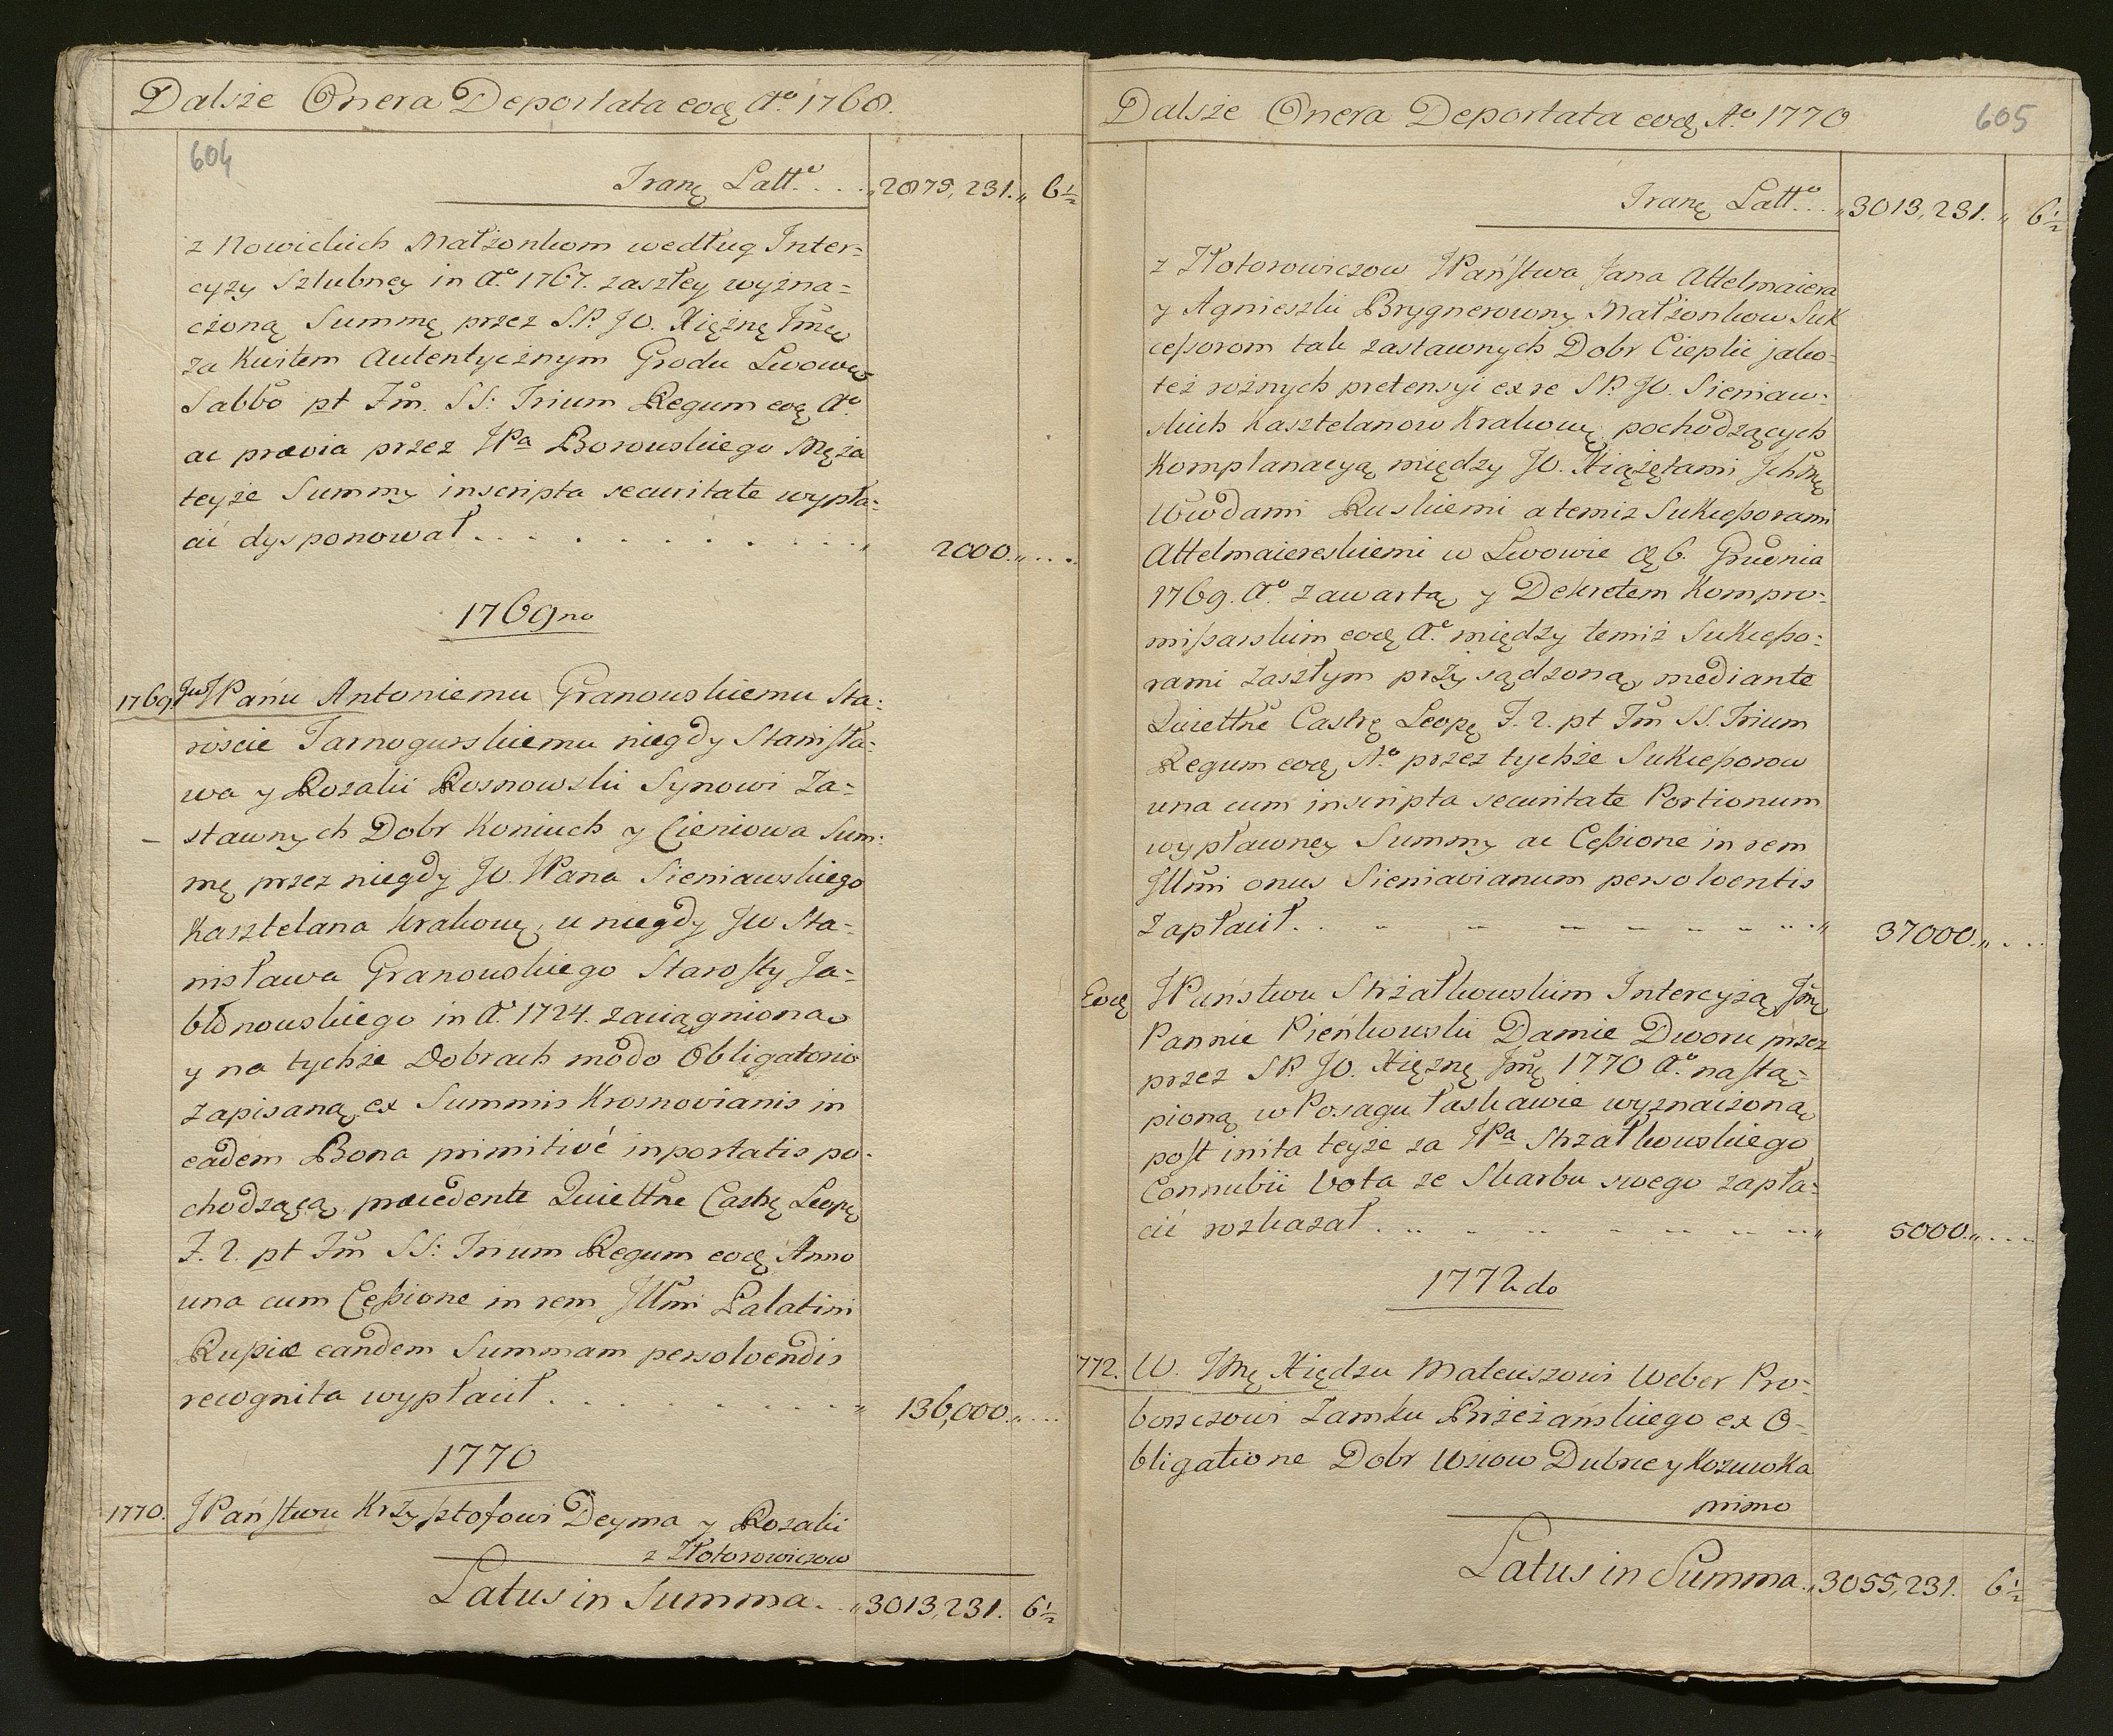 Dalsze Onera Deportata eodę Aº. 1768.
604
Tranę Lattº. . . „2875,231.„ 6½
z Nowickich Małżonkom według Inter=
cyzy Szlubney in Aº. 1767. zaszłey wyzna=
czoną Summę przez S.P. JO. Xiężnę Jmę
za Kwitem Autentycznym Grodu Lwowę
Sabbo pt Fm. SS: Trium Regum eoę Aº.
ac prævia przez JPa Borowskiego Męża
teyże Summy inscripta securitate wypła=
cić dysponował . . . . . . . . „ 2000.„ . . .
1769no
1769 JWPanu Antoniemu Granowskiemu Sta=
roście Tarnogurskiemu niegdy Stanisła=
wa y Rozalii Rosnowski Synowi Za=
stawnych Dobr Koniuch y Cieniowa Sum:
mę przez niegdy JO. Pana Sieniawskiego
Kasztelana Krakowę, u niegdy JW Sta=
nisława Granowskiego Starosty Ja=
błonowskiego in Aº. 1724. zaciągnioną
y na tychże Dobrach modo Obligatorio
zapisaną ex Summis Krosnovianis in
eadem Bona primitivé inportatis po=
chodzącą, præcedente Quiettne Castrę Leopę
F. 2. pt Fm SS: Trium Regum eoę Anno
una cum Cessione in rem Jllmi Palatini
Russiæ eandem Summam persolvendis
recognita wypłacił . . . . . . . . „ 136,000.„ . . .
1770
1770. JPaństwu Krzysztofowi Deyma y Rozalii
z Złotorowiczow
Latus in Summa. . „3013,231. 6½
Dalsze Onera Deportata eodę Aº 1770
605
Tranę Lattº. . . „3013,231.„ 6½
z Złotorowiczow JPaństwa Jana Attelmaiera
y Agnieszki Brygnerowny Małżonkow Suk
cessorom tak zastawnych Dobr Cieplic jako=
też rożnych pretensyi ex re S.P. JO. Sieniaw=
skich Kasztelanow Krakowę pochodzących
Komplanacyą między JO. Xiążętami Jchmę
Wwdami Ruskiemi a temiz Sukcessorami
Attelmaiereskiemi w Lwowie dę 6. Grudnia
1769. Aº. zawartą y Dekretem Kompro=
missarskim eoę Aº. między temiż Sukcesso=
rami zaszłym przysądzoną, mediante
Quiettne Castrę Leopę F. 2. pt Fm SS. Trium
Regum eoę Aº. przez tychże Sukcessorow
una cum inscripta securitate Portionum
wypławney Summy ac Cessione in rem
Jllmi onus Sieniavianum persolventis
Zapłacił . . . . . . . . „ 37000.„ . . .
Eodę JPaństwu Strzałkowskim Intercyzą Jmę
Pannie Pieńkowski Damie Dworu przez
przez S.P. JO. Xiężnę Jmę 1770 Aº. nastą=
pioną w Posagu łaskawie wyznaczoną
post inita teyże za JPa Strzałkowskiego
Connubii vota ze Skarbu swego zapła=
cić rozkazał . . . . . . . . „ 5000.„ . . .
1772do
772. W. Jmę Xiędzu Mateuszowi Weber Pro=
boszczowi Zamku Brzeżańskiego ex O=
bligatione Dobr Wsiow Dubnie y Kozuwka
primo
Latus in Summa. . „3055,231. 6½